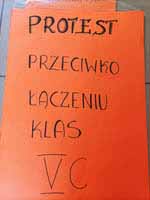 PROTEST
PRZECIWKO
ŁĄCZENIU
KLAS
V C